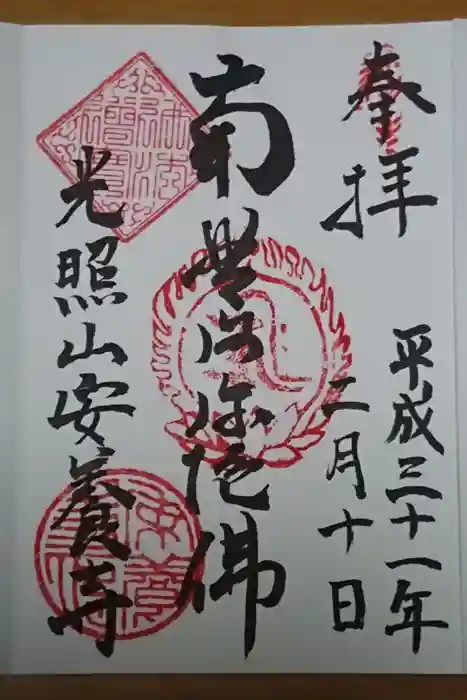 奉拝
平成三十一年
二月十日
南無阿弥陀佛
光照山安養寺